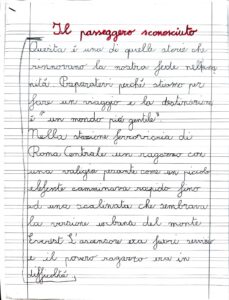 Il passeggero sconosciuto
Questa è una di quelle storie che
rinnovano la nostra fede nell'uma
nità Preparatevi perché stiamo per
fare un viaggio e la destinazione
è "un mondo più gentile"
Nella stazione ferroviaria di
Roma Centrale un ragazzo con
una valigia pesante come un piccolo
elefante camminava rapido fino
ad una scalinata che sembrava
la versione urbana del monte
Everest L'ascensore era fuori servizio
e il povero ragazzo era in
difficoltà